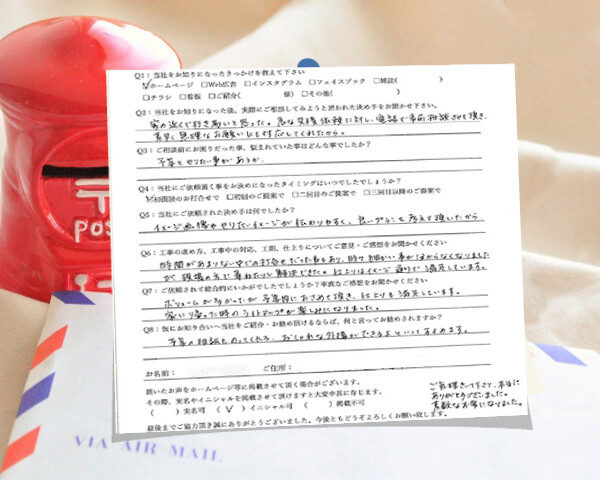 Q1：当社をお知りになったきっかけを教えて下さい
☑ホームページ □Web広告 □インスタグラム □フェイスブック □雑誌( )
□チラシ □看板 □ご紹介( 様) □その他( )
Q2：当社をお知りになった後、実際にご相談してみようと思われた決め手をお聞かせ下さい。
家の近くで行き易いと思った。急な見積依頼に対し、電話で事前相談させて頂き、
素早く無理なお願いにも対応してくれたから。
Q3：ご相談前にお困りだった事、悩まれていた事はどんな事でしたか？
予算とやりたい事があうか。
Q4：当社にご依頼頂く事をお決めになったタイミングはいつでしたでしょうか？
☑初回面談のお打合せで □初回のご提案で □二回目のご提案で □三回目以降のご提案で
Q5：当社にご依頼された決め手は何でしたか？
イメージ画像ややりたいイメージが伝わりやすく、良いプランを考えて頂いたから
Q6：工事の進め方、工事中の対応、工期、仕上りについてご意見・ご感想をお聞かせください
時間があまりない中での打合せだった事もあり、時々細かい事がわからなくなりました
が 現場の方に尋ねたりし解決できた。仕上りはイメージ通りで満足しています。
Q7：ご依頼されて総合的にいかがでしたでしょうか？率直なご感想をお聞かせください
ボリュームが多かったが予算内におさめて頂き、仕上りも満足しています。
家に帰った時のライトアップが楽しみになりました。
Q8：仮にお知り合いへ当社をご紹介・お勧め頂けるならば、何と言ってお勧めされますか？
予算の相談ものってくれる、おしゃれな外構ができるよといってすすめます。
お名前： ご住所：
頂いたお声をホームページ等に掲載させて頂く場合がございます。
その際、実名やイニシャルを掲載させて頂けますと大変幸甚に存じます。
( ) 実名可 ( ✓ ) イニシャル可 ( ) 掲載不可
最後までご協力頂き誠にありがとうございました。今後ともどうぞよろしくお願い致します。
ありがとうございました。
素敵なお家になりました。
POS
VIA AIR MAIL